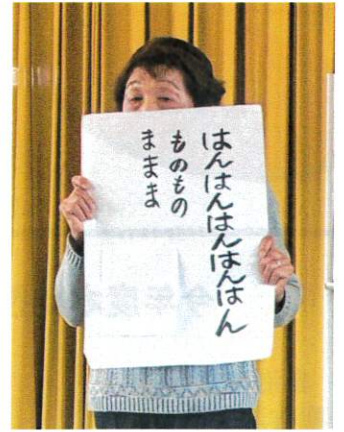 はんはんはんはんはん
ものもの
ままま